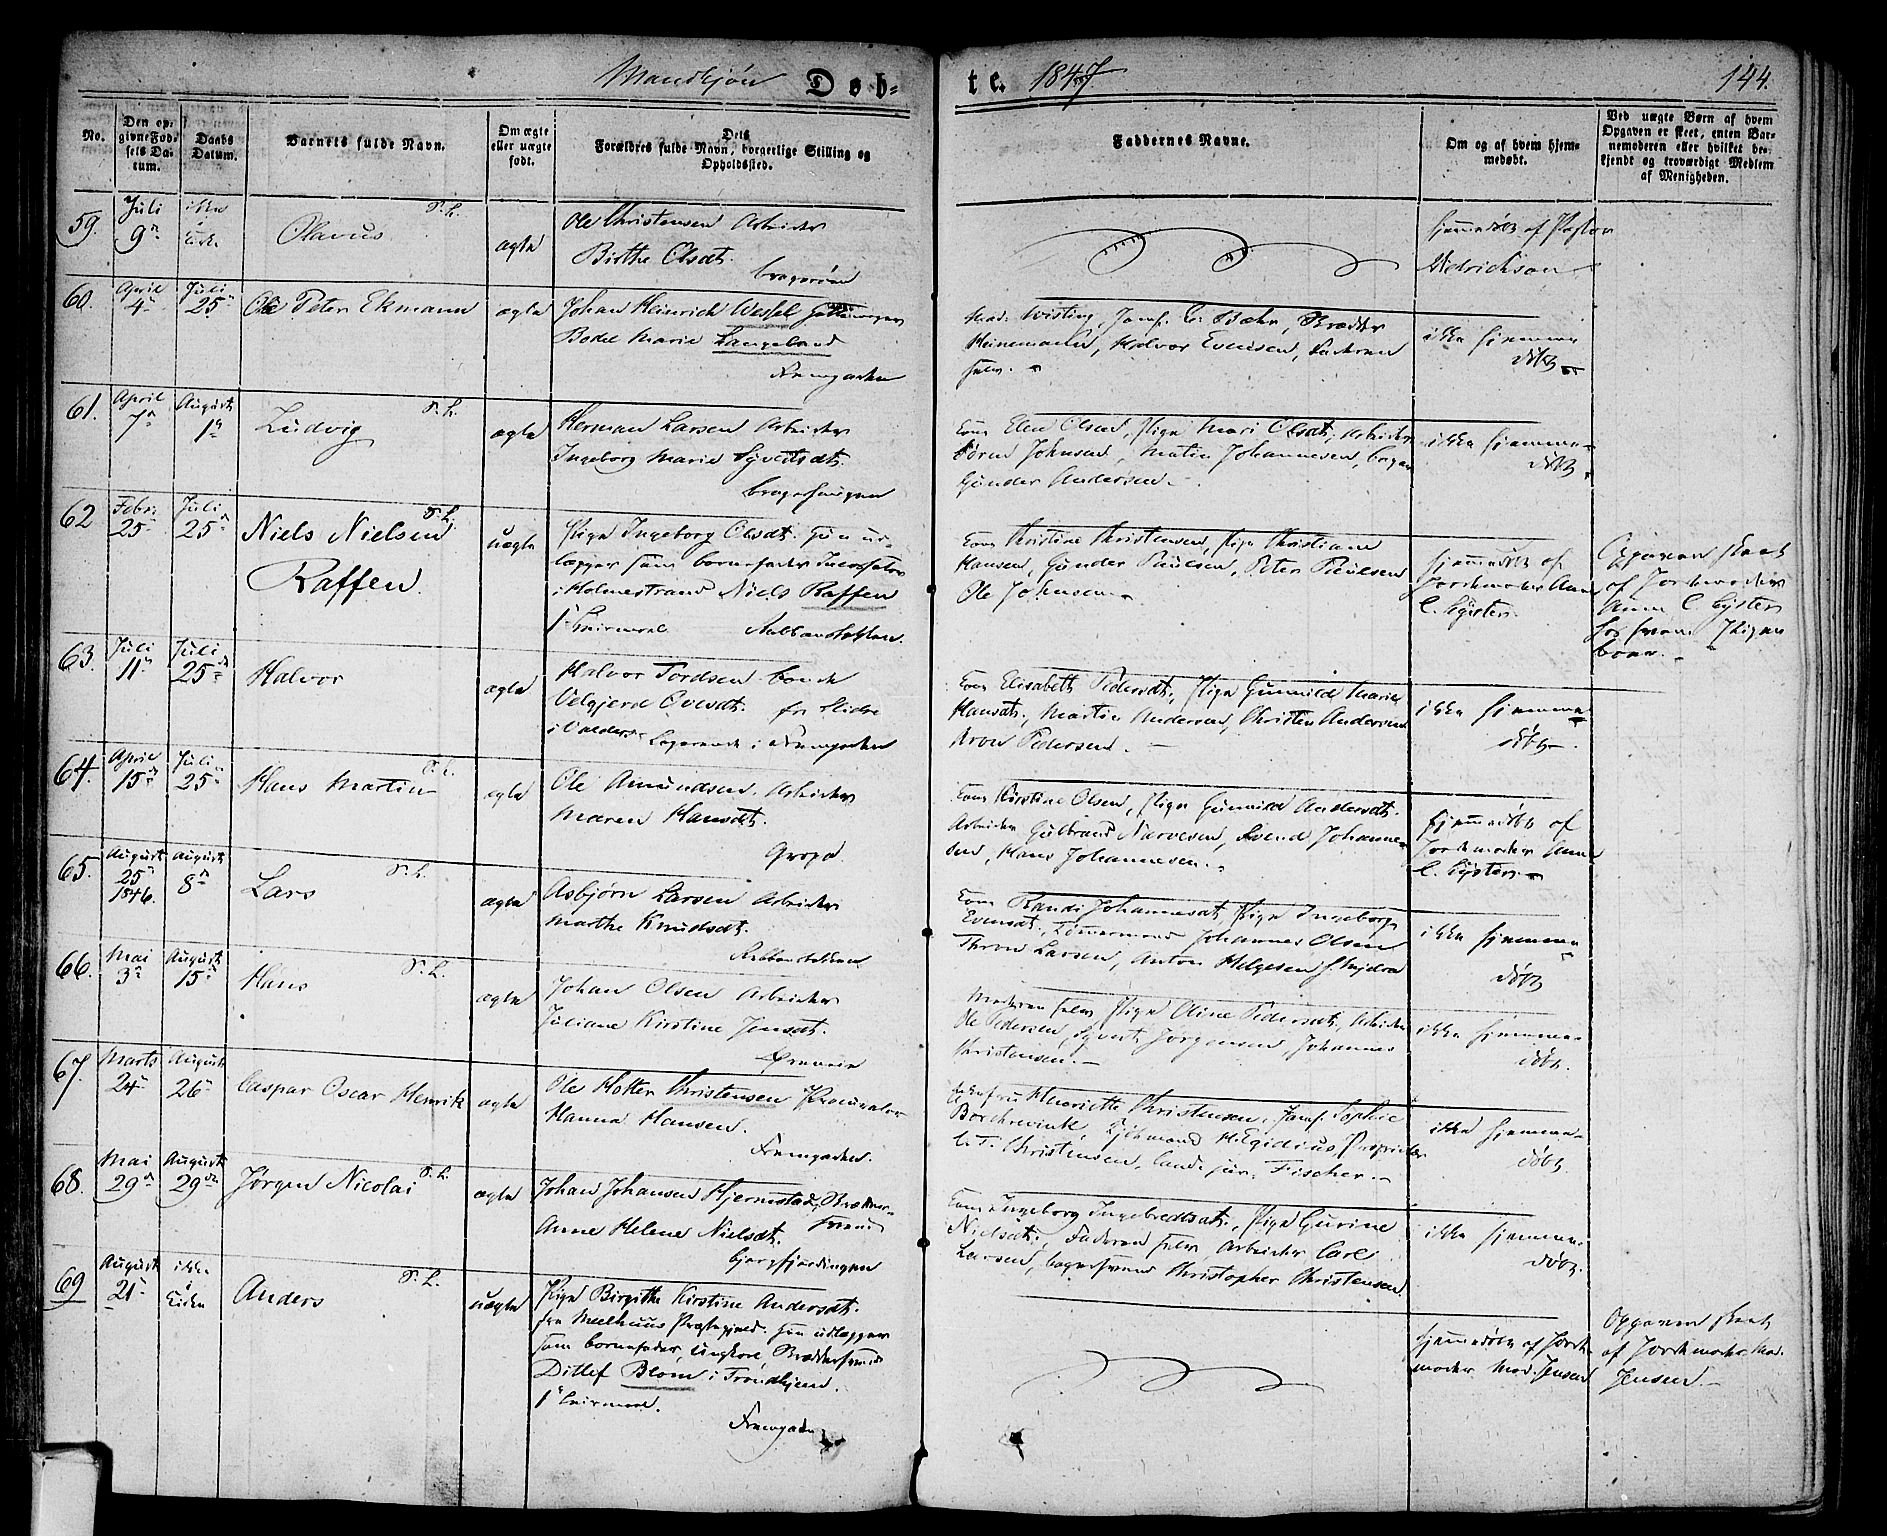 Mandkjön Døb-
te. 1847. 144.
No.
Den op-
givne Fød-
sels Da-
tum.
Daabs
Datum.
Barnets fulde Navn.
Om ægte
eller uægte
født.
Dets
Forældres fulde Navn, borgerlige Stilling og
Opholdssted.
Faddernes Navne.
Om og af hvem hjem-
medøbt.
Ved uægte Børn af hvem
Opgaven er skeet, enten Bar-
nemoderen eller hvilket be-
kjendt og troværdigt Medlem
af Menigheden.
59. Juli 9 ikke Olavus ægte
Ole Christensen Arbeider
Birthe Olsdt.
Hjemmedøbt af Pastor
Didrickson
60. April 4 Juli 25 Ole Peter Ekmann ægte
Johan Heinrich Wessel
Bodel Marie Langeland
Mad. Wisting, Jomf. Bæhr,
Heinemann, Halvor Evensen, Faderen
selv.
ikke hjemme
døbt
61. April 7 August 1 Ludvig ægte
Herman Larsen Arbeider
Ingeborg Marie Syvertsdt.
Kone Elen Olsen, Pige Mari Olsdt., Arbeider
Søren Johnsen, Martin Johannesen,
Gunder Andersen.
ikke hjemme-
døbt
62 Febr. 25 Juli 25 Niels Nielsen
Raffen uægte
Pige Ingeborg Olsdt. Hun ud-
lægger som barnefader
i Holmestrand Niels Raffen
1' Leiermaal.
Kone Christine Christensen, Pige Christiane
Hansen, Gunder Paulsen, Peter Paulsen
Ole Johnsen.
Hjemmedøbt af
Jordemoder Anne
C. Lyster
Opgaven skeet
af Jordemoder
Anne C Lyster
63. Juli 11 Juli 25 Halvor ægte
Halvor Tordsen
Velgjerd Ovesdt. fra Slidre
i Valders
Kone Elisabeth Pedersdt., Pige Gunnild Marie
Hansdt., Martin Andersen, Christen Andersen
Pedersen.
ikke hjemme-
døbt.
64. April 15 Juli 25 Hans Martin ægte
Ole Amundsen. Arbeider
Maren Hansdt.
Kone Kirstine Olsen, Pige Gunnild Andersdt.
Arbeider Gulbrand Narvesen, Svend Johanne-
sen, Hans Johannesen.
Hjemmedøbt af
Jordemoder Anne
C. Lyster
65. August 25 1846. August 8 Lars ægte
Asbjørn Larsen Arbeider
Marthe Knudsdt.
Kone Randi Johannesdt, Pige Ingeborg
Evensdt., Tømmermand Johannes Olsen
Thron Larsen, Anton Helgesen
ikke hjemme
døbt
66. Mai 3 August 15 Hans ægte
Johan Olsen Arbeider
Juliane Kirstine Jensdt.
Moderen selv Pige Oline Pedersdt, Arbeider
Ole Pedersen, Syvert Jørgensen, Johannes
Christensen.
ikke hjemme-
døbt.
67. Marts 24 August 26 Caspar Oscar Henrik ægte
Ole Holter Christensen Procurator
Hanna Hansen.
Henriette Christensen, Jomf. Sophie
Borchrevink, H. Egidius, Proprietær
C. T. Christensen, cand. jur. Fischer.
ikke hjemme-
døbt.
68. Mai 29 August 29 Jørgen Nicolai ægte
Johan Johansen Hjermstad,
Anne Helene Nielsdt.
Kone Ingeborg Ingebredtsdt., Pige Gurine
Nielsdt., Faderen selv, Arbeider Carl
Larsen, Christopher Christensen.
ikke hjemme-
døbt.
69 August 21 ikke i Anders uægte
Pige Birgitthe Kirstine Andersdt.
fra Meelhuus Præstegjæld. Hun udlægger
som barnefader, Ungkarl,
Ditlef Blom i Trondhjem.
1' Leiermaal.
Hjemmedøbt af Jorde-
moder Mad. Jensen
Opgaven skeet
af Jordemoder Mad.
Jensen.